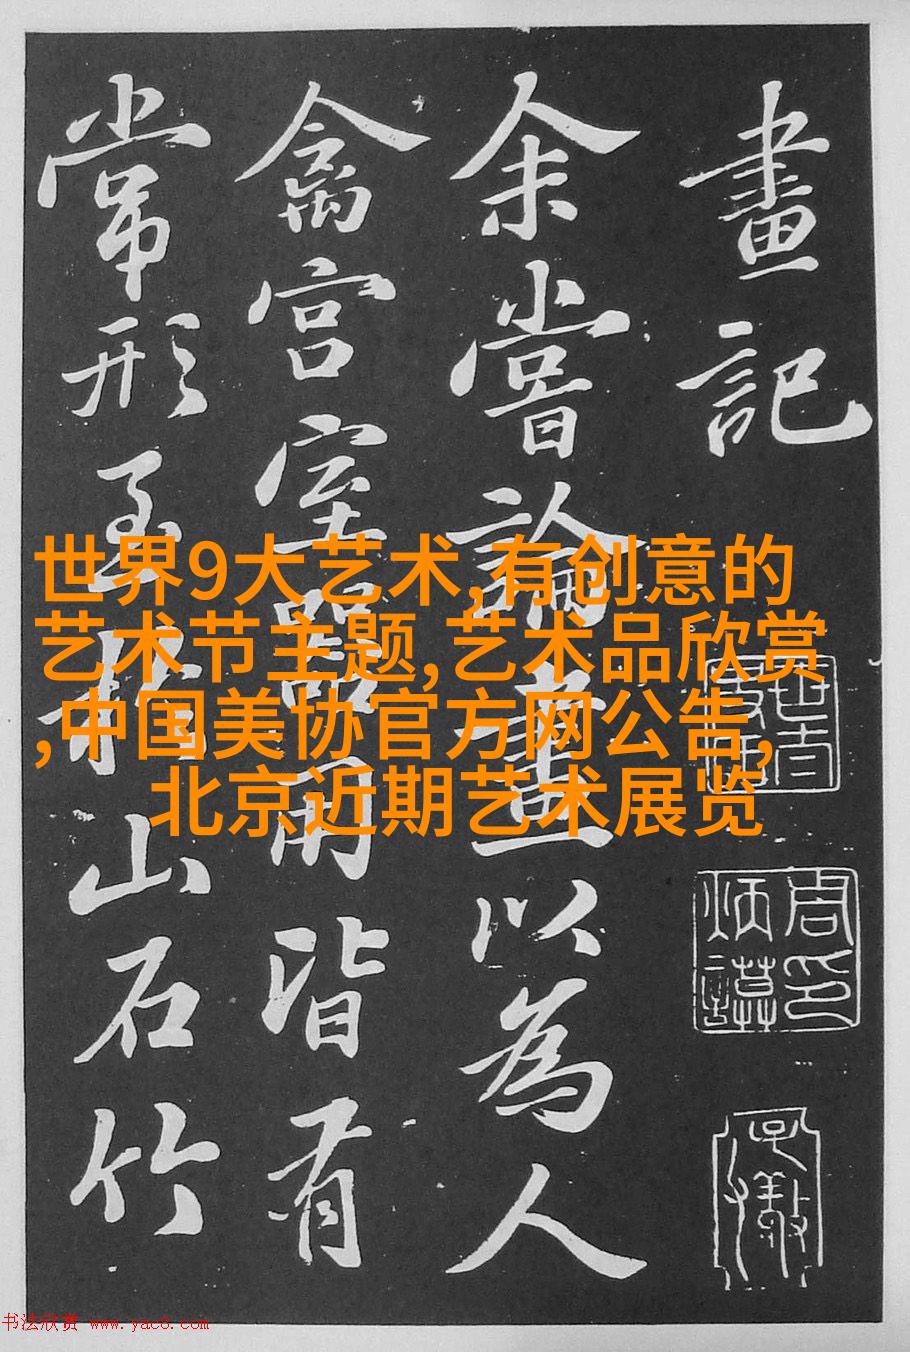 畫記
余嘗論畫以為人
禽宮室器用皆有
常形至於山石竹
世界9大艺术,有创意的
艺术节主题,艺术品欣赏
,中国美协官方网公告,
北京近期艺术展览
周印
炳謨
书法欣赏 www.yac8.com